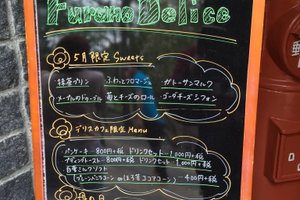 Furano Delice
5月限定 Sweets
抹茶プリン ふわっとフロマージュ ガトーサンマルク
メープルのドゥーブル 苺とチーズのロール ゴーダチーズシフォン
デリスカフェ限定 Menu
パンケーキ 800円+税 ドリンクセット 1,000円+税
800円+税 ドリンクセット 1,000円+税
自家ミルクソフト
400円+税